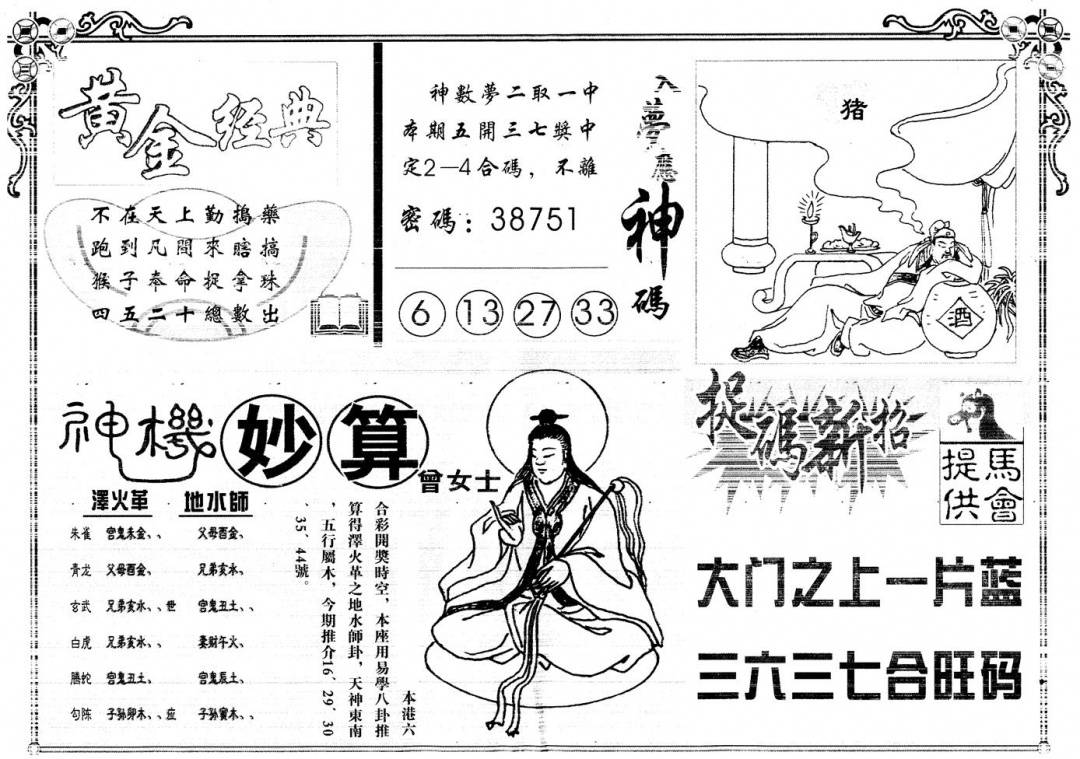 黃金经典
不在天上勤搗藥
跑到凡間來瞎搞
猴子奉命捉拿珠
四五二十總數出
神數夢二取一中
本期五開三七獎中
定2—4合碼，不離
密碼：38751
6 13 27 33
入夢應神碼
猪
酒
神機妙算
曾女士
澤火革 地水師
朱雀 宫鬼未金、、 父母酉金、
青龙 父母酉金、 兄弟亥水、、
玄武 兄弟亥水、、世 宫鬼丑土、、
白虎 兄弟亥水、 妻財午火、
騰蛇 宫鬼丑土、 宫鬼辰土、
句陈 子孙卯木、、应 子孙寅木、、
本港六
合彩開獎時空，本座用易學八卦推
算得澤火革之地水師卦，天神東南
，五行屬木，今期推介16、29、30
、35、44號。
捉碼新招
馬會
提供
大门之上一片蓝
三六三七合旺码